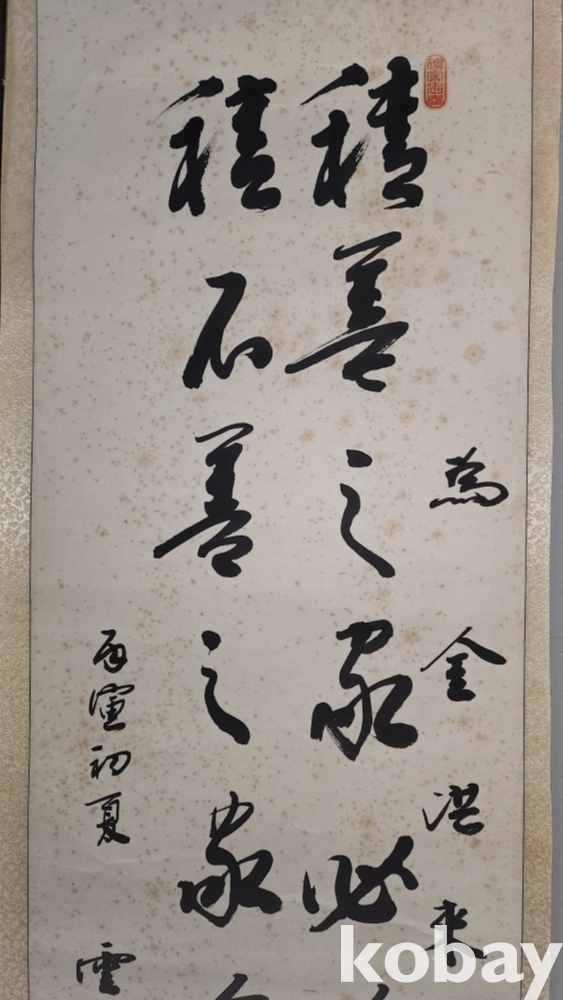 為金洪来
積善之家必
積不善之家
丙寅初夏 雲
kobay